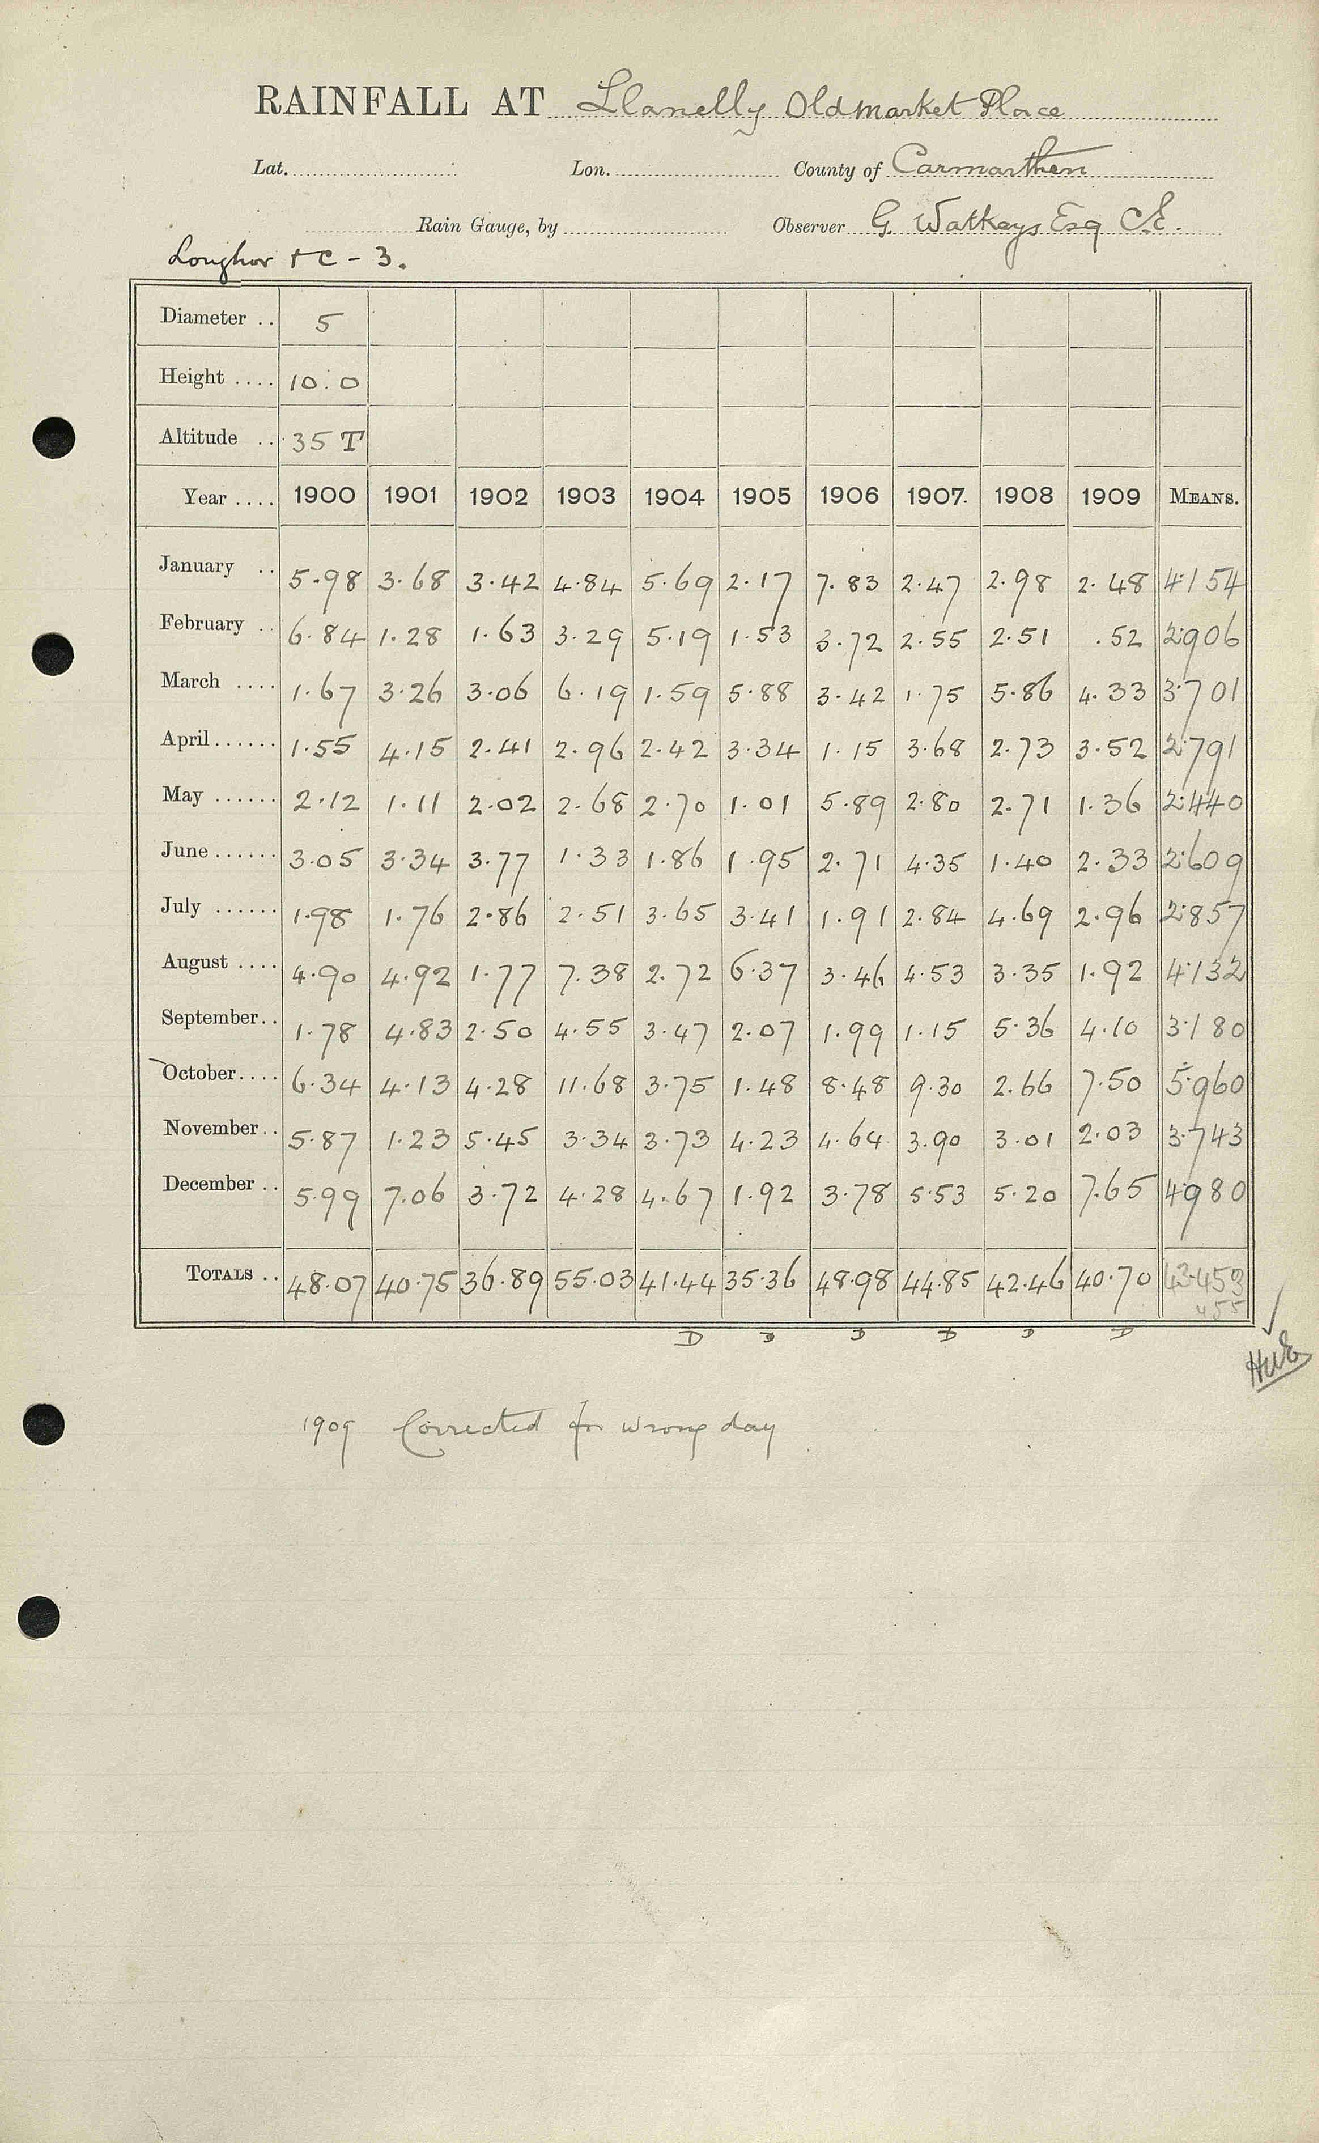 RAINFALL AT Llanelly Old Market Place
Lat. Lon. County of Carmarthen
Rain Gauge, by Observer G. Watkeys Esq C.E.
Loughor + C - 3.
Diameter .. 5
Height .... 10.0
Altitude .. 35 T
Year .... 1900 1901 1902 1903 1904 1905 1906 1907. 1908 1909 MEANS.
January .. 5.98 3.68 3.42 4.84 5.69 2.17 7.83 2.47 2.98 2.48 4.154
February .. 6.84 1.28 1.63 3.29 5.19 1.53 3.72 2.55 2.51 .52 2.906
March .... 1.67 3.26 3.06 6.19 1.59 5.88 3.42 1.75 5.86 4.33 3.701
April...... 1.55 4.15 2.41 2.96 2.42 3.34 1.15 3.68 2.73 3.52 2.791
May ...... 2.12 1.11 2.02 2.68 2.70 1.01 5.89 2.80 2.71 1.36 2.440
June...... 3.05 3.34 3.77 1.33 1.86 1.95 2.71 4.35 1.40 2.33 2.609
July ...... 1.98 1.76 2.86 2.51 3.65 3.41 1.91 2.84 4.69 2.96 2.857
August .... 4.90 4.92 1.77 7.38 2.72 6.37 3.46 4.53 3.35 1.92 4.132
September.. 1.78 4.83 2.50 4.55 3.47 2.07 1.99 1.15 5.36 4.10 3.180
October.... 6.34 4.13 4.28 11.68 3.75 1.48 8.48 9.30 2.66 7.50 5.960
November.. 5.87 1.23 5.45 3.34 3.73 4.23 4.64 3.90 3.01 2.03 3.743
December .. 5.99 7.06 3.72 4.28 4.67 1.92 3.78 5.53 5.20 7.65 4.980
TOTALS .. 48.07 40.75 36.89 55.03 41.44 35.36 48.98 44.85 42.46 40.70 43.453
455
D D D D D D
1909 Corrected for wrong day